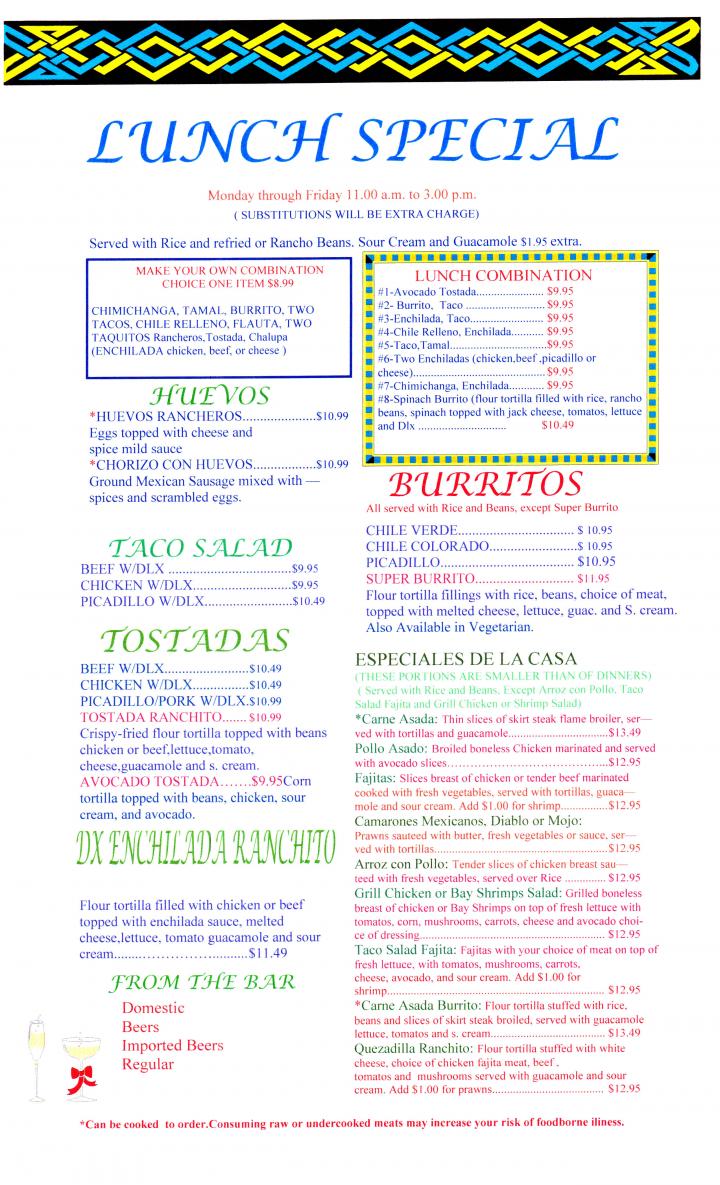 LUNCH SPECIAL
Monday through Friday 11.00 a.m. to 3.00 p.m.
( SUBSTITUTIONS WILL BE EXTRA CHARGE)
Served with Rice and refried or Rancho Beans. Sour Cream and Guacamole $1.95 extra.
MAKE YOUR OWN COMBINATION
CHOICE ONE ITEM $8.99
CHIMICHANGA, TAMAL, BURRITO, TWO
TACOS, CHILE RELLENO, FLAUTA, TWO
TAQUITOS Rancheros,Tostada, Chalupa
(ENCHILADA chicken, beef, or cheese )
HUEVOS
*HUEVOS RANCHEROS.....................$10.99
Eggs topped with cheese and
spice mild sauce
*CHORIZO CON HUEVOS..................$10.99
Ground Mexican Sausage mixed with —
spices and scrambled eggs.
TACO SALAD
BEEF W/DLX ............................$9.95
CHICKEN W/DLX.....................$9.95
PICADILLO W/DLX.........................$10.49
TOSTADAS
BEEF W/DLX........................$10.49
CHICKEN W/DLX................$10.49
PICADILLO/PORK W/DLX.$10.99
TOSTADA RANCHITO....... $10.99
Crispy-fried flour tortilla topped with beans
chicken or beef,lettuce,tomato,
cheese,guacamole and s. cream.
AVOCADO TOSTADA…….$9.95Corn
tortilla topped with beans, chicken, sour
cream, and avocado.
DX ENCHILADA RANCHITO
Flour tortilla filled with chicken or beef
topped with enchilada sauce, melted
cheese,lettuce, tomato guacamole and sour
cream.......……………..........$11.49
FROM THE BAR
Domestic
Beers
Imported Beers
Regular
LUNCH COMBINATION
#1-Avocado Tostada....................... $9.95
#2- Burrito, Taco ........................... $9.95
#3-Enchilada, Taco......................... $9.95
#4-Chile Relleno, Enchilada........... $9.95
#5-Taco,Tamal................................$9.95
#6-Two Enchiladas (chicken,beef ,picadillo or
cheese)............................................$9.95
#7-Chimichanga, Enchilada............ $9.95
#8-Spinach Burrito (flour tortilla filled with rice, rancho
beans, spinach topped with jack cheese, tomatos, lettuce
and Dlx ............................. $10.49
BURRITOS
All served with Rice and Beans, except Super Burrito
CHILE VERDE.................................. $ 10.95
CHILE COLORADO......................... $ 10.95
PICADILLO...................................... $10.95
SUPER BURRITO............................ $11.95
Flour tortilla fillings with rice, beans, choice of meat,
topped with melted cheese, lettuce, guac. and S. cream.
Also Available in Vegetarian.
ESPECIALES DE LA CASA
(THESE PORTIONS ARE SMALLER THAN OF DINNERS)
( Served with Rice and Beans, Except Arroz con Pollo, Taco
Salad Fajita and Grill Chicken or Shrimp Salad)
*Carne Asada: Thin slices of skirt steak flame broiler, ser—
ved with tortillas and guacamole.........................$13.49
Pollo Asado: Broiled boneless Chicken marinated and served
with avocado slices……………………………...$12.95
Fajitas: Slices breast of chicken or tender beef marinated
cooked with fresh vegetables, served with tortillas, guaca—
mole and sour cream. Add $1.00 for shrimp...............$12.95
Camarones Mexicanos, Diablo or Mojo:
Prawns sauteed with butter, fresh vegetables or sauce, ser—
ved with tortillas............................................$12.95
Arroz con Pollo: Tender slices of chicken breast sau—
teed with fresh vegetables, served over Rice ............. $12.95
Grill Chicken or Bay Shrimps Salad: Grilled boneless
breast of chicken or Bay Shrimps on top of fresh lettuce with
tomatos, corn, mushrooms, carrots, cheese and avocado choi-
ce of dressing................................................. $12.95
Taco Salad Fajita: Fajitas with your choice of meat on top of
fresh lettuce, with tomatos, mushrooms, carrots,
cheese, avocado, and sour cream. Add $1.00 for
shrimp.............................................................. $12.95
*Carne Asada Burrito: Flour tortilla stuffed with rice,
beans and slices of skirt steak broiled, served with guacamole
lettuce, tomatos and s. cream................................ $13.49
Quezadilla Ranchito: Flour tortilla stuffed with white
cheese, choice of chicken fajita meat, beef .
tomatos and mushrooms served with guacamole and sour
cream. Add $1.00 for prawns................................ $12.95
*Can be cooked to order.Consuming raw or undercooked meats may increase your risk of foodborne iliness.